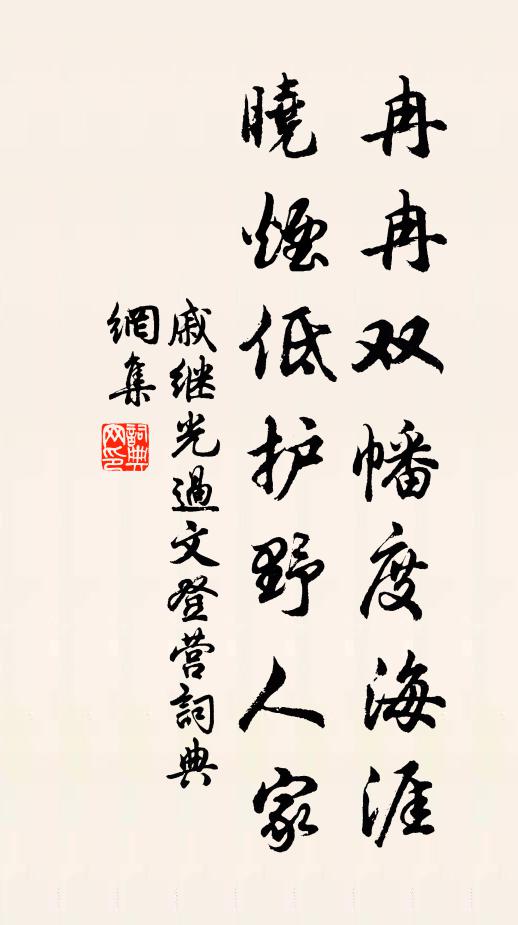 冉冉双幡度海涯
曉煙低护野人家
戚继光過文登营詞典
網集
詞典
网印